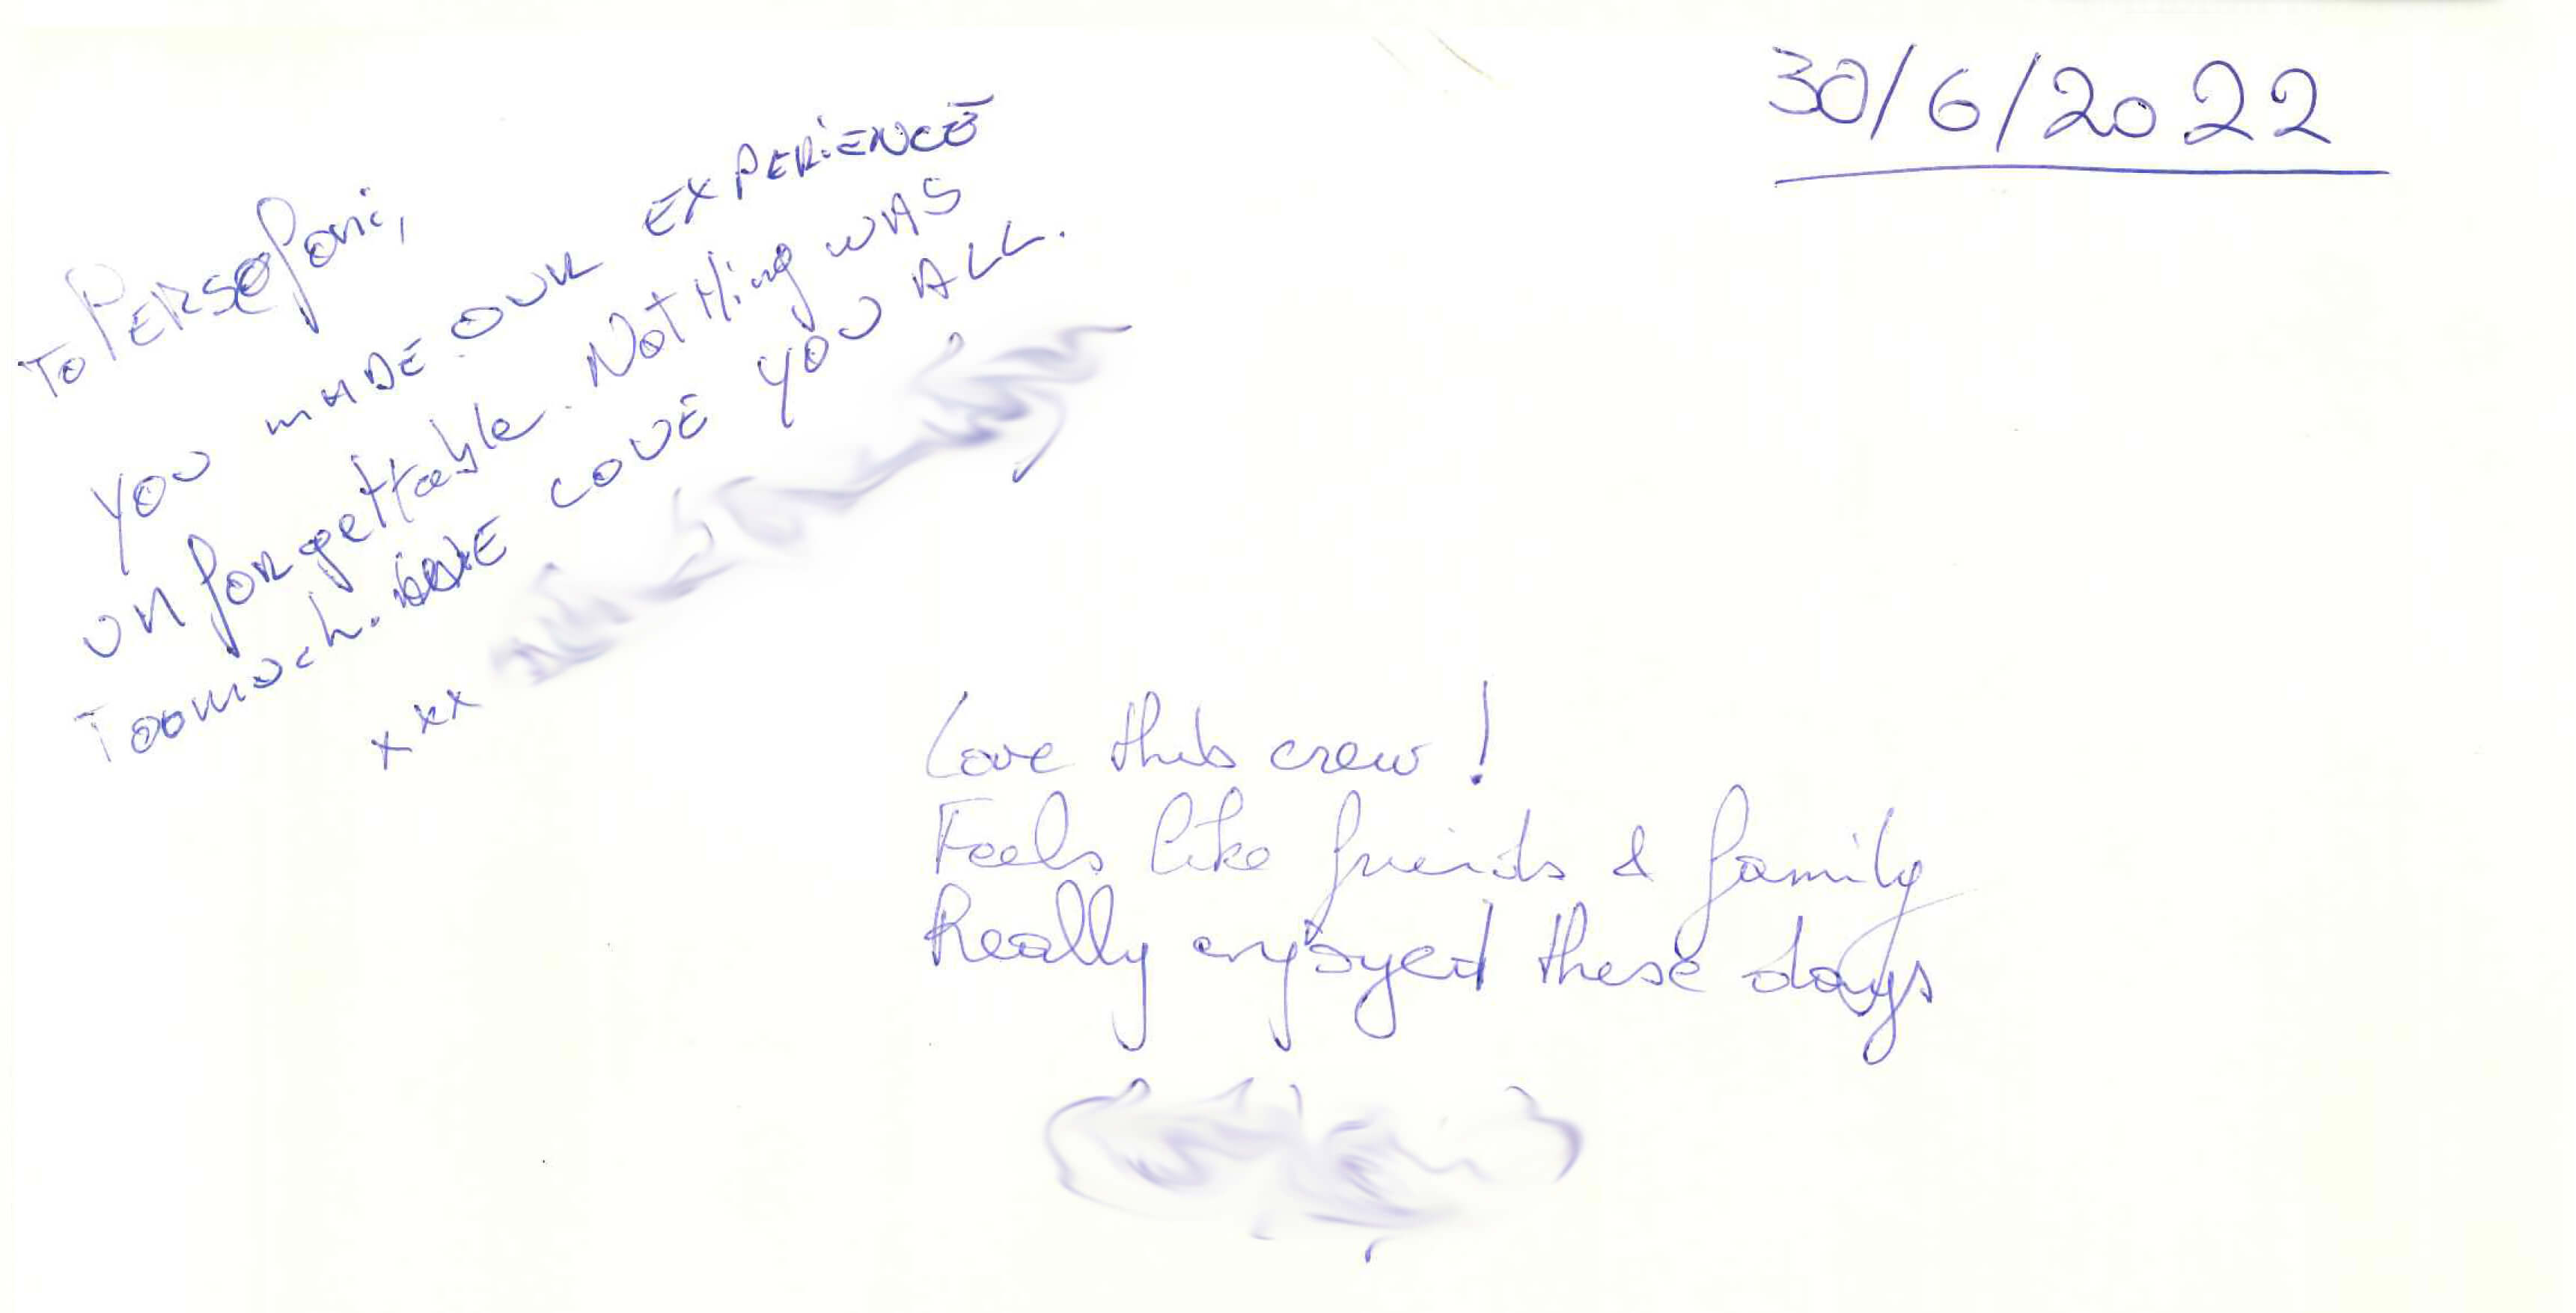 30/6/2022
To Persefoni,
YOU MADE OUR EXPERIENCE
unforgettable. Nothing WAS
Too much. WE LOVE YOU ALL.
xxx
Love this crew!
Feels like friends & family
Really enjoyed these days